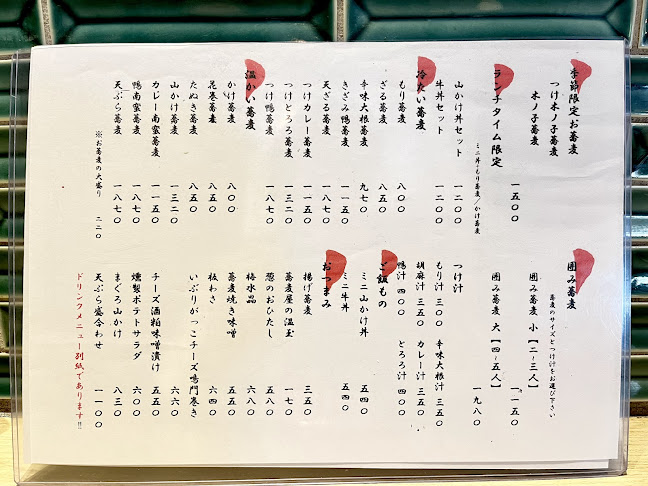 季節限定お蕎麦
つけ木ノ子蕎麦
木ノ子蕎麦
一五〇〇
ランチタイム限定
ミニ丼+もり蕎麦/かけ蕎麦
山かけ丼セット 一二〇〇
牛丼セット 一二〇〇
冷たい蕎麦
もり蕎麦 八〇〇
ざる蕎麦 八五〇
辛味大根蕎麦 九七〇
きざみ鴨蕎麦 一一五〇
天ざる蕎麦 一八七〇
つけカレー蕎麦 一一五〇
つけとろろ蕎麦 一三二〇
つけ鴨蕎麦 一八七〇
温かい蕎麦
かけ蕎麦 八〇〇
花巻蕎麦 八五〇
たぬき蕎麦 八五〇
山かけ蕎麦 一三二〇
カレー南蛮蕎麦 一一五〇
鴨南蛮蕎麦 一八七〇
天ぷら蕎麦 一八七〇
※お蕎麦の大盛り 二二〇
囲み蕎麦
蕎麦のサイズとつけ汁をお選び下さい
囲み蕎麦 小【二~三人】 一一五〇
囲み蕎麦 大【四~五人】 一九八〇
つけ汁
もり汁 三〇〇 辛味大根汁 三五〇
胡麻汁 三五〇 カレー汁 三五〇
鴨汁 四〇〇 とろろ汁 四〇〇
ご飯もの
ミニ山かけ丼 五四〇
ミニ牛丼 五四〇
おつまみ
揚げ蕎麦 三五〇
蕎麦屋の温玉 一七〇
葱のおひたし 五八〇
梅水晶 六八〇
蕎麦焼き味噌 五五〇
板わさ 六四〇
いぶりがっこチーズ鳴門巻き 六六〇
チーズ酒粕味噌漬け 五五〇
燻製ポテトサラダ 六〇〇
まぐろ山かけ 八三〇
天ぷら盛合わせ 一一〇〇
ドリンクメニュー別紙であります!!